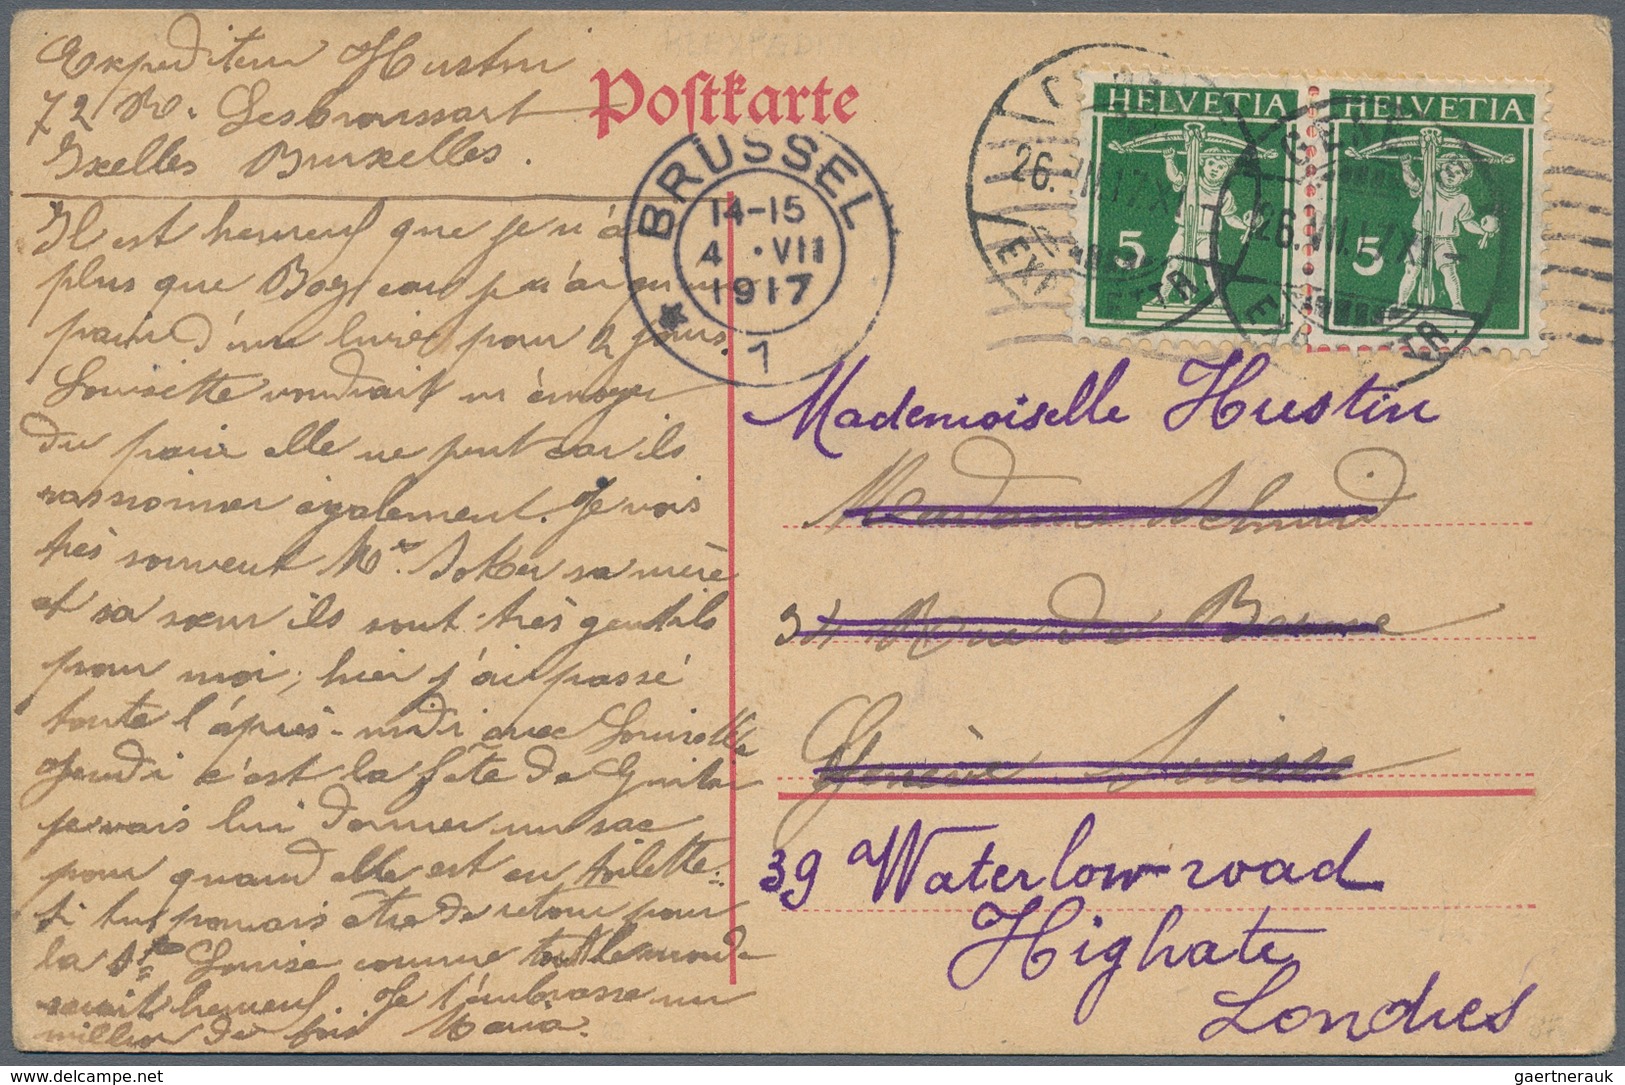 Expediteur Hustin
72 R. Lesbroussart
Ixelles Bruxelles.
Postkarte
BRÜSSEL
14-15
4 . VII
1917
1
HELVETIA
5
HELVETIA
5
26. VII. 17. XI
26. VII. 17. XI-
Il est heureuf que je n'ai
plus que car je n'ai qu'un
pain d'une livre pour 2 jours.
Louisette voudrait m'envoyer
du pain elle ne peut car ils
également. Je vois
très souvent Mr. Joker sa mère
et sa sœur ils sont très gentils
pour moi; hier j'ai passé
toute l'après-midi avec Louisette
Jeudi c'est la fête de
je vais lui donner un sac
pour quand elle est en toilette.
si tu pouvais être de retour pour
la Ste Louise comme tout le monde
serait heureuf. Je t'embrasse un
million de fois Maria.
Mademoiselle Hustin
Madame Schmid
34 Rue de Berne
Genève Suisse
39 Waterlow road
Highate
Londres
gaertnerauk @ delcampe.net